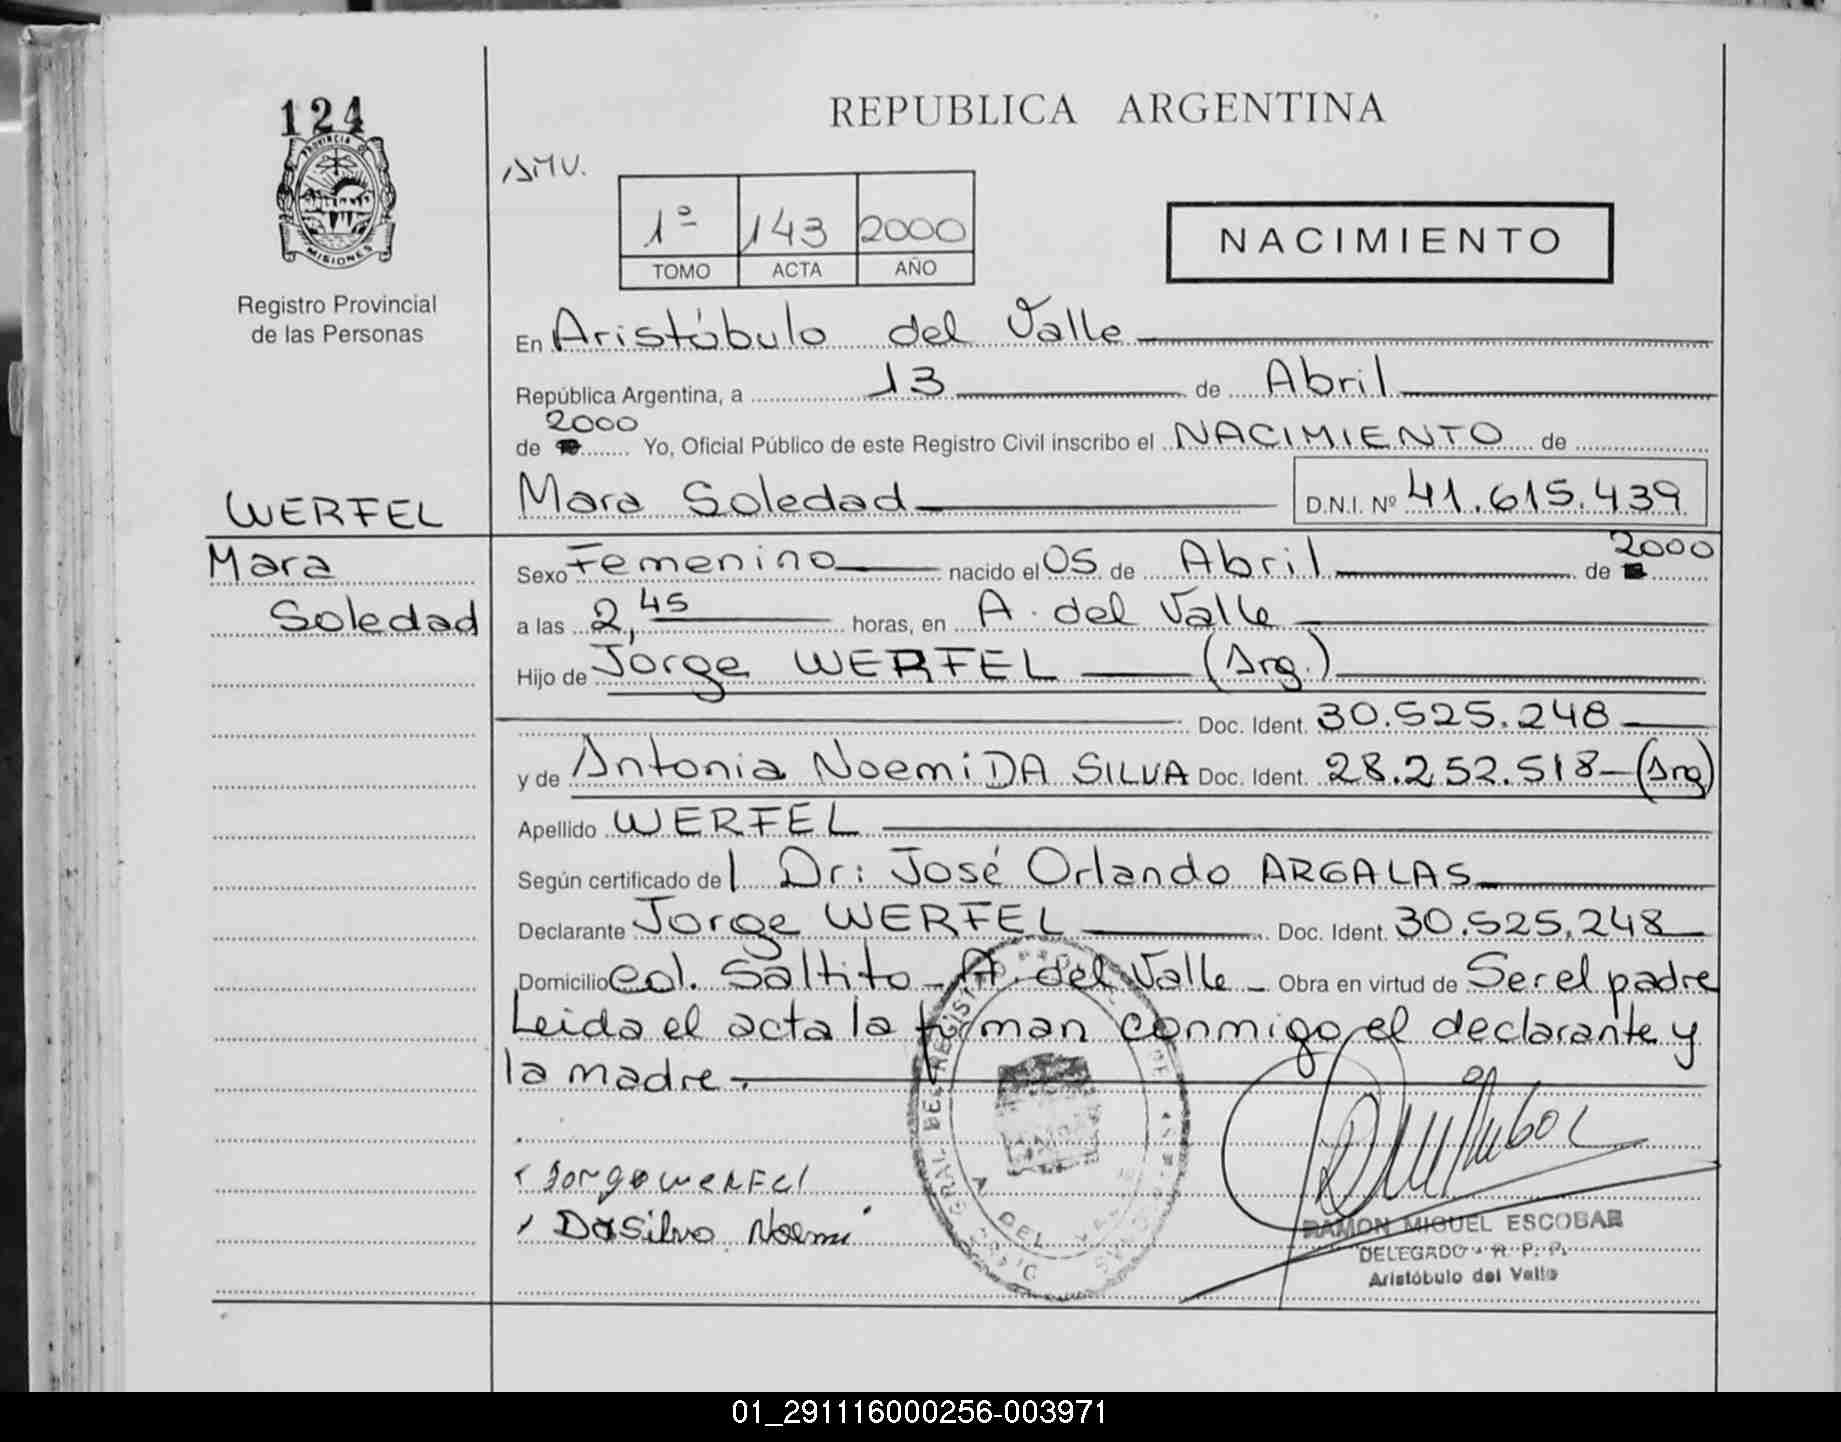 124
PROVINCIA DE
MISIONES
Registro Provincial
de las Personas
REPUBLICA ARGENTINA
1º 143 2000
TOMO ACTA AÑO
NACIMIENTO
En Aristóbulo del Valle
República Argentina, a 13 de Abril
2000
de Yo, Oficial Público de este Registro Civil inscribo el NACIMIENTO de
WERFEL
Mara Soledad D.N.I. Nº 41.615.439
Mara
Soledad
2000
Sexo Femenino nacido el 05 de Abril de
a las 2,45 horas, en A. del Valle
Hijo de Jorge WERFEL (Arg.)
Doc. Ident. 30.525.248
y de Antonia Noemi DA SILVA Doc. Ident. 28.252.518 (Arg)
Apellido WERFEL
Según certificado del Dr: José Orlando ARGALAS
Declarante Jorge WERFEL Doc. Ident. 30.525.248
Domicilio Col. Saltito - A. del Valle - Obra en virtud de Ser el padre
Leida el acta la firman conmigo el declarante y
la madre.
Jorge WERFEL
Dasilva Noemi
RAMON MIGUEL ESCOBAR
DELEGADO - R. P. P.
Aristóbulo del Valle
01_291116000256-003971